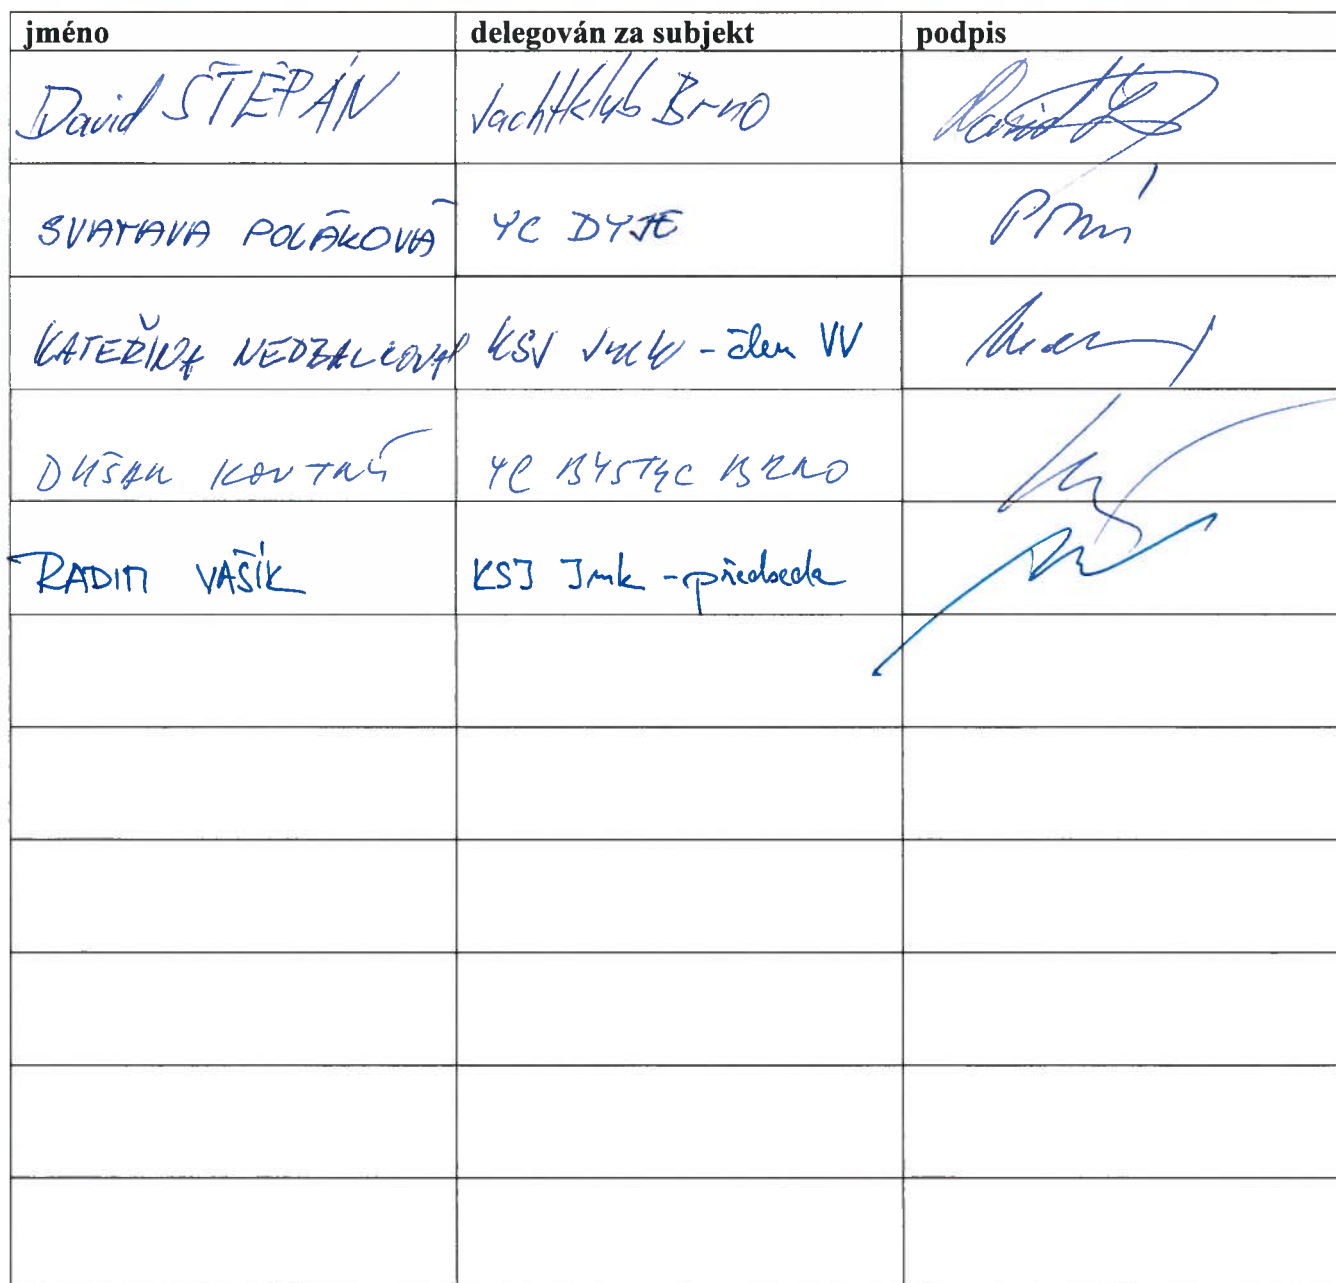 jméno delegován za subjekt podpis
David ŠTĚPÁN Jachtklub Brno
SVATAVA POLÁKOVÁ YC DYJE
KATEŘINA NEDBALKOVÁ KSJ - člen VV
DUŠAN KOUTNÝ YC BYSTRC BRNO
RADIM VAŠÍK KSJ Jmk - předseda